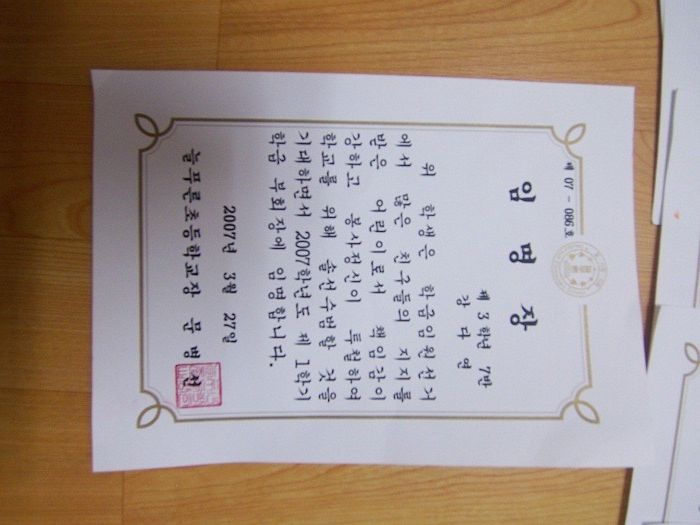 제 07 - 086 호
임 명 장
제 3 학년 7반
강 다 연
위 학생은 학급임원선거
에서 많은 친구들의 지지를
받은 어린이로서 책임감이
강하고 봉사정신이 투철하여
학교를 위해 솔선수범할 것을
기대하면서 2007학년도 제 1학기
학급 부회장에 임명합니다.
2007년 3월 27일
늘푸른초등학교장 목 병 선